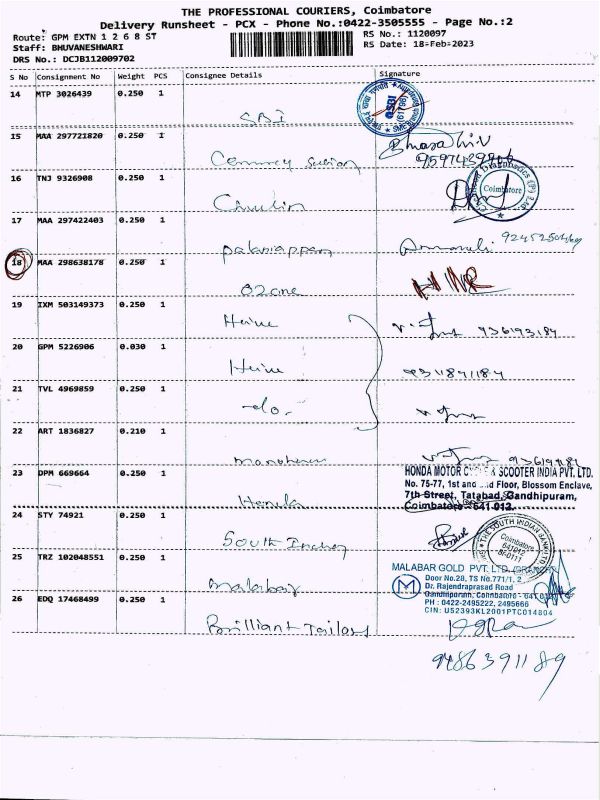 THE PROFESSIONAL COURIERS, Coimbatore
Delivery Runsheet - PCX - Phone No.:0422-3505555 - Page No.:2
Route: GPM EXTN 1 2 6 8 ST
RS No.: 1120097
Staff: BHUVANESHWARI
RS Date: 18-Feb-2023
DRS No.: DCJB112009702
S No Consignment No Weight PCS Consignee Details Signature
14 MTP 3026439 0.250 1
SBI
15 MAA 297721820 0.250 1
16 TNJ 9326908 0.250 1
Coimbatore
17 MAA 297422403 0.250 1
Palaniappan
18 MAA 298638178 0.250 1
Ozone
19 IXM 503149373 0.250 1
Heine
20 GPM 5226906 0.030 1
Heine
21 TVL 4969859 0.250 1
-do.
22 ART 1836827 0.210 1
23 DPM 669664 0.250 1
HONDA MOTOR CYCLE & SCOOTER INDIA PVT. LTD.
No. 75-77, 1st and 2nd Floor, Blossom Enclave,
7th Street, Tatabad, Gandhipuram,
Coimbatore - 641 012.
Honda
24 STY 74921 0.250 1
THE SOUTH INDIAN BANK LTD
Coimbatore
641012
South Indian
25 TRZ 102048551 0.250 1
MALABAR GOLD PVT. LTD.
Door No.28, TS No.771/1, 2
Dr. Rajendraprasad Road
Gandhipuram, Coimbatore - 641 012
PH : 0422-2495222, 2495666
CIN: U52393KL2001PTC014804
Malabar
26 EDQ 17468499 0.250 1
Brilliant Tailors
9486391189